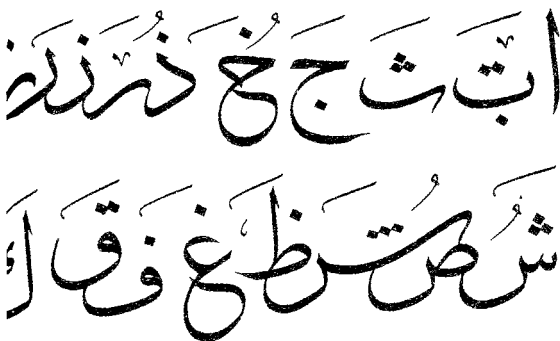 ا بت ث ج خُ ذُ ر ز ر ز
ش ص ظ غ ف ق ك